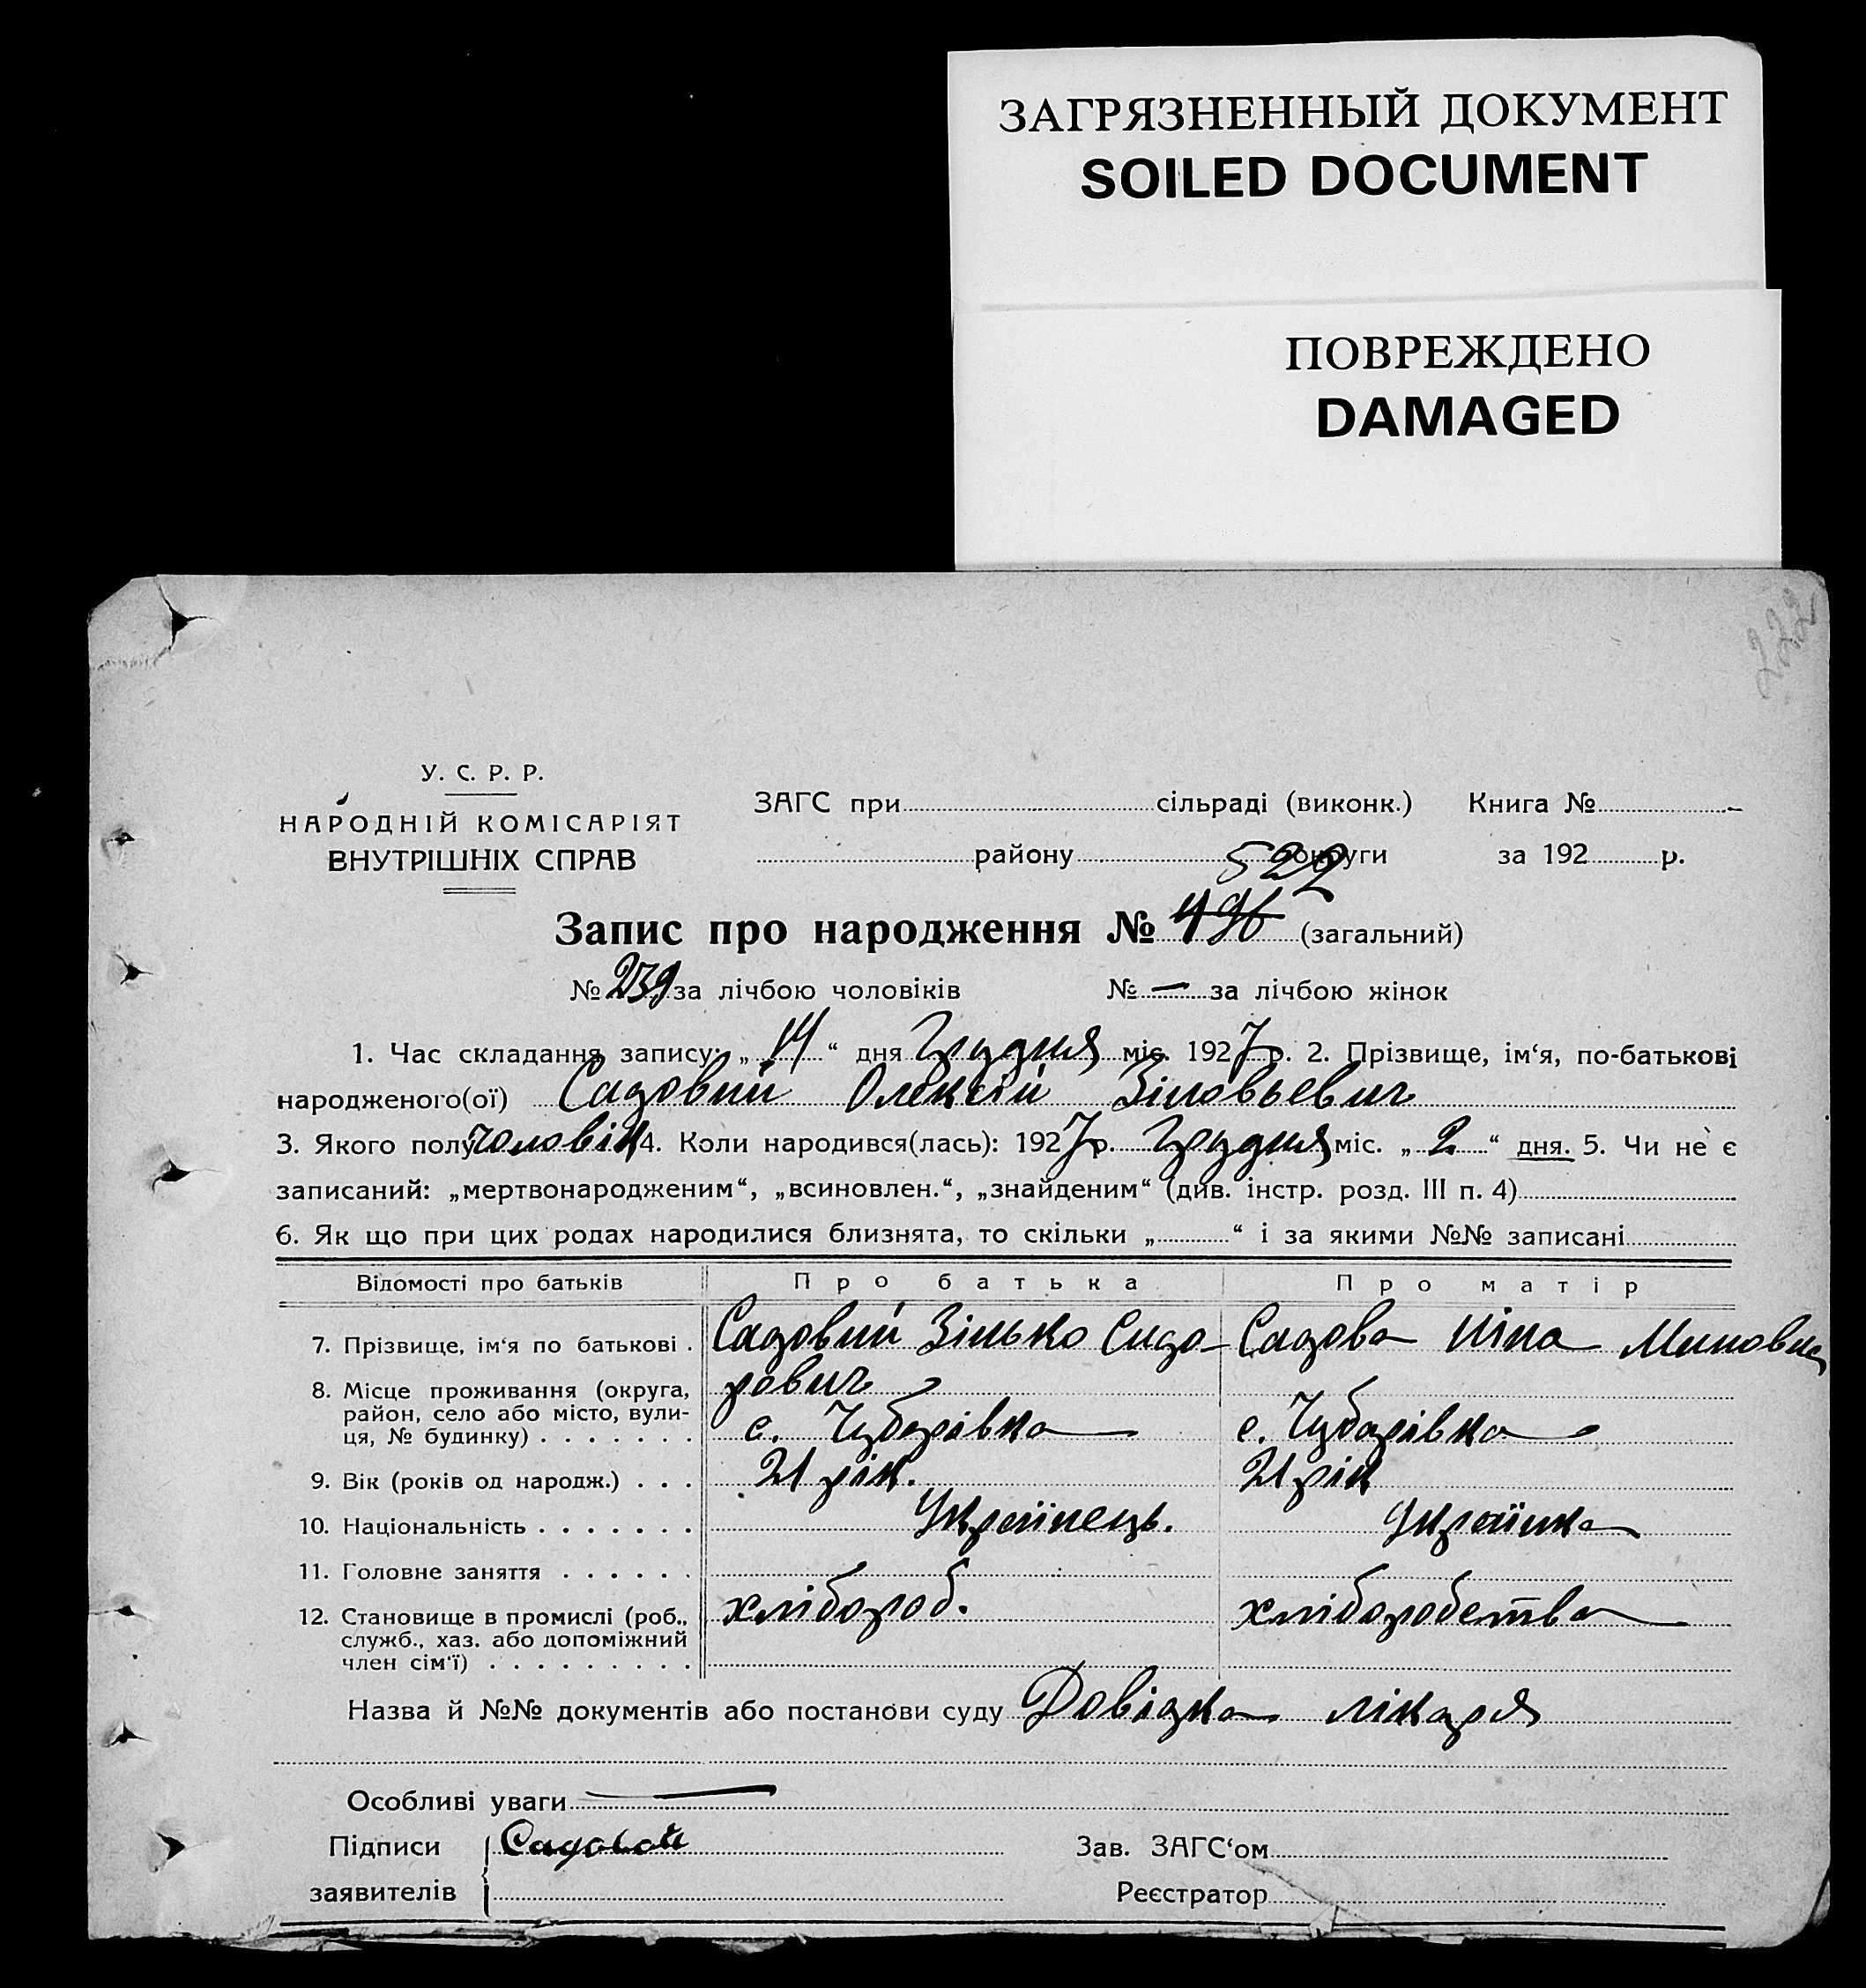 ЗАГРЯЗНЕННЫЙ ДОКУМЕНТ
SOILED DOCUMENT
ПОВРЕЖДЕНО
DAMAGED
222
У. С. Р. Р.
НАРОДНІЙ КОМІСАРІЯТ
ВНУТРІШНІХ СПРАВ
ЗАГС при сільраді (виконк.) Книга №
району округи за 192 р.
522
Запис про народження № 496 (загальний)
№ 239 за лічбою чоловіків № — за лічбою жінок
1. Час складання запису: „14“ дня Грудня міс. 1927 р. 2. Прізвище, ім‘я, по-батькові
народженого(ої) Садовий Олексій Зіновьевич
3. Якого полу чоловік 4. Коли народився(лась): 1927 р. Грудня міс. „2“ дня. 5. Чи не є
записаний: „мертвонародженим“, „всиновлен.“, „знайденим“ (див. інстр. розд. III п. 4)
6. Як що при цих родах народилися близнята, то скільки „ “ і за якими №№ записані
Відомості про батьків Про батька Про матір
7. Прізвище, ім‘я по батькові . Садовий Зінько Сидо- Садова Ніна Миновна
рович
8. Місце проживання (округа,
район, село або місто, вули-
ця, № будинку) . . . . . . . с. Чубарівка с. Чубарівка
9. Вік (років од народж.) . . . 21 рік. 21 рік
10. Національність . . . . . . . Українець. Українка
11. Головне заняття . . . . . .
12. Становище в промислі (роб., хлібороб. хліборобства
служб., хаз. або допоміжний
член сім‘ї) . . . . . . . . .
Назва й №№ документів або постанови суду Довідка лікаря
Особливі уваги —
Підписи Садовой Зав. ЗАГС‘ом
заявителів Реєстратор